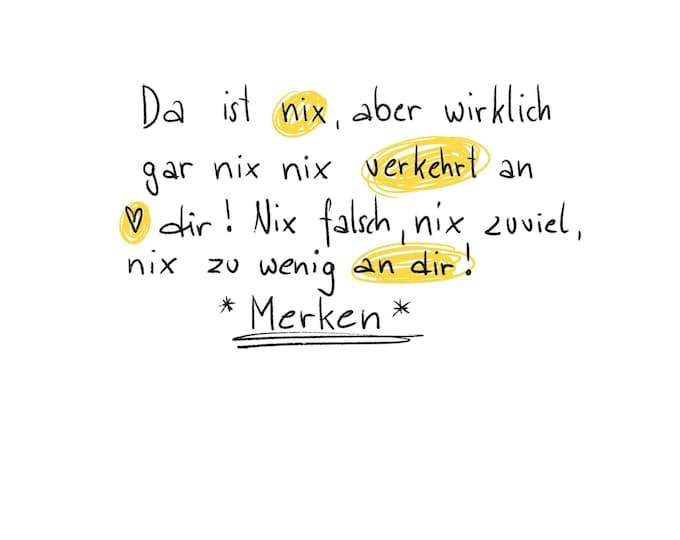 Da ist nix, aber wirklich
gar nix nix verkehrt an
♡ dir! Nix falsch, nix zuviel,
nix zu wenig an dir!
* Merken *